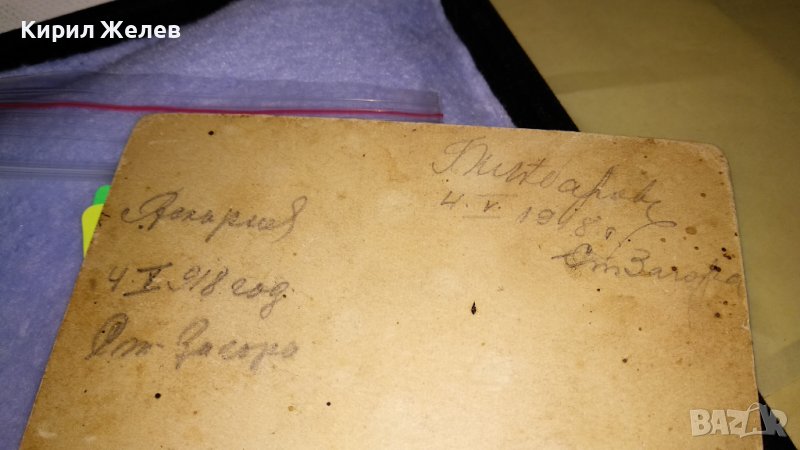 Кирил Желев
4. V. 1918 г.
Ст. Загора
4 V 918 год.
Ст. Загора
BAZAR